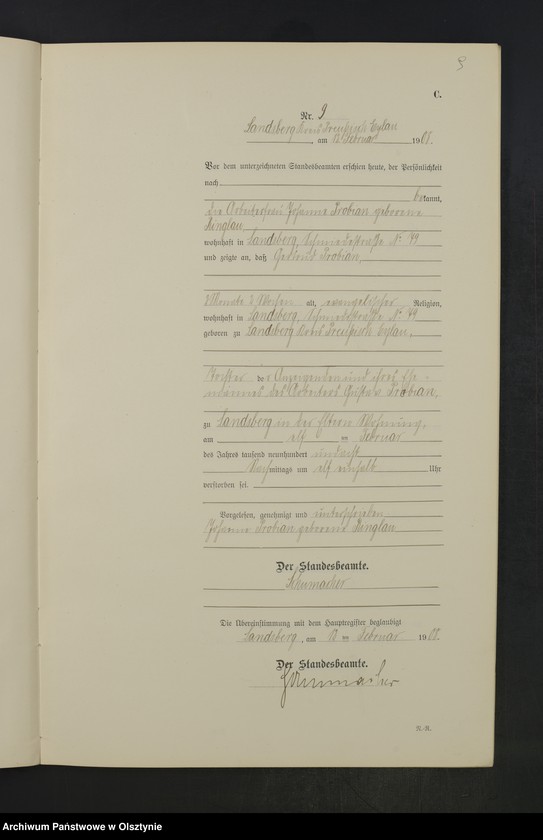 9
C.
Nr. 9
Landsberg Kreis Preußisch Eylau
, am 12 Februar 1908.
Vor dem unterzeichneten Standesbeamten erschien heute, der Persönlichkeit
nach,
bekannt,
die Arbeiterfrau Johanna Probian geborene
Ringlau
wohnhaft in Landsberg, Schmiedestraße Nr. 49
und zeigte an, daß Probian,
2 Monate 3 Wochen alt, evangelischer Religion,
wohnhaft in Landsberg, Schmiedestraße Nr. 49
geboren zu Landsberg Kreis Preußisch Eylau,
Tochter der Anzeigenden und ihres Ehe-
mannes des Arbeiters Gustav Probian,
zu Landsberg in der Eltern Wohnung,
am elf ten Februar
des Jahres tausend neunhundert und acht
Nachmittags um elf einhalb Uhr
verstorben sei.
Vorgelesen, genehmigt und unterschrieben
Johanna Probian geborene Ringlau
Der Standesbeamte.
Schumacher
Die Übereinstimmung mit dem Hauptregister beglaubigt
Landsberg, am 12 ten Februar 1908.
Der Standesbeamte.
Schumacher
R.-R.
Archiwum Państwowe w Olsztynie